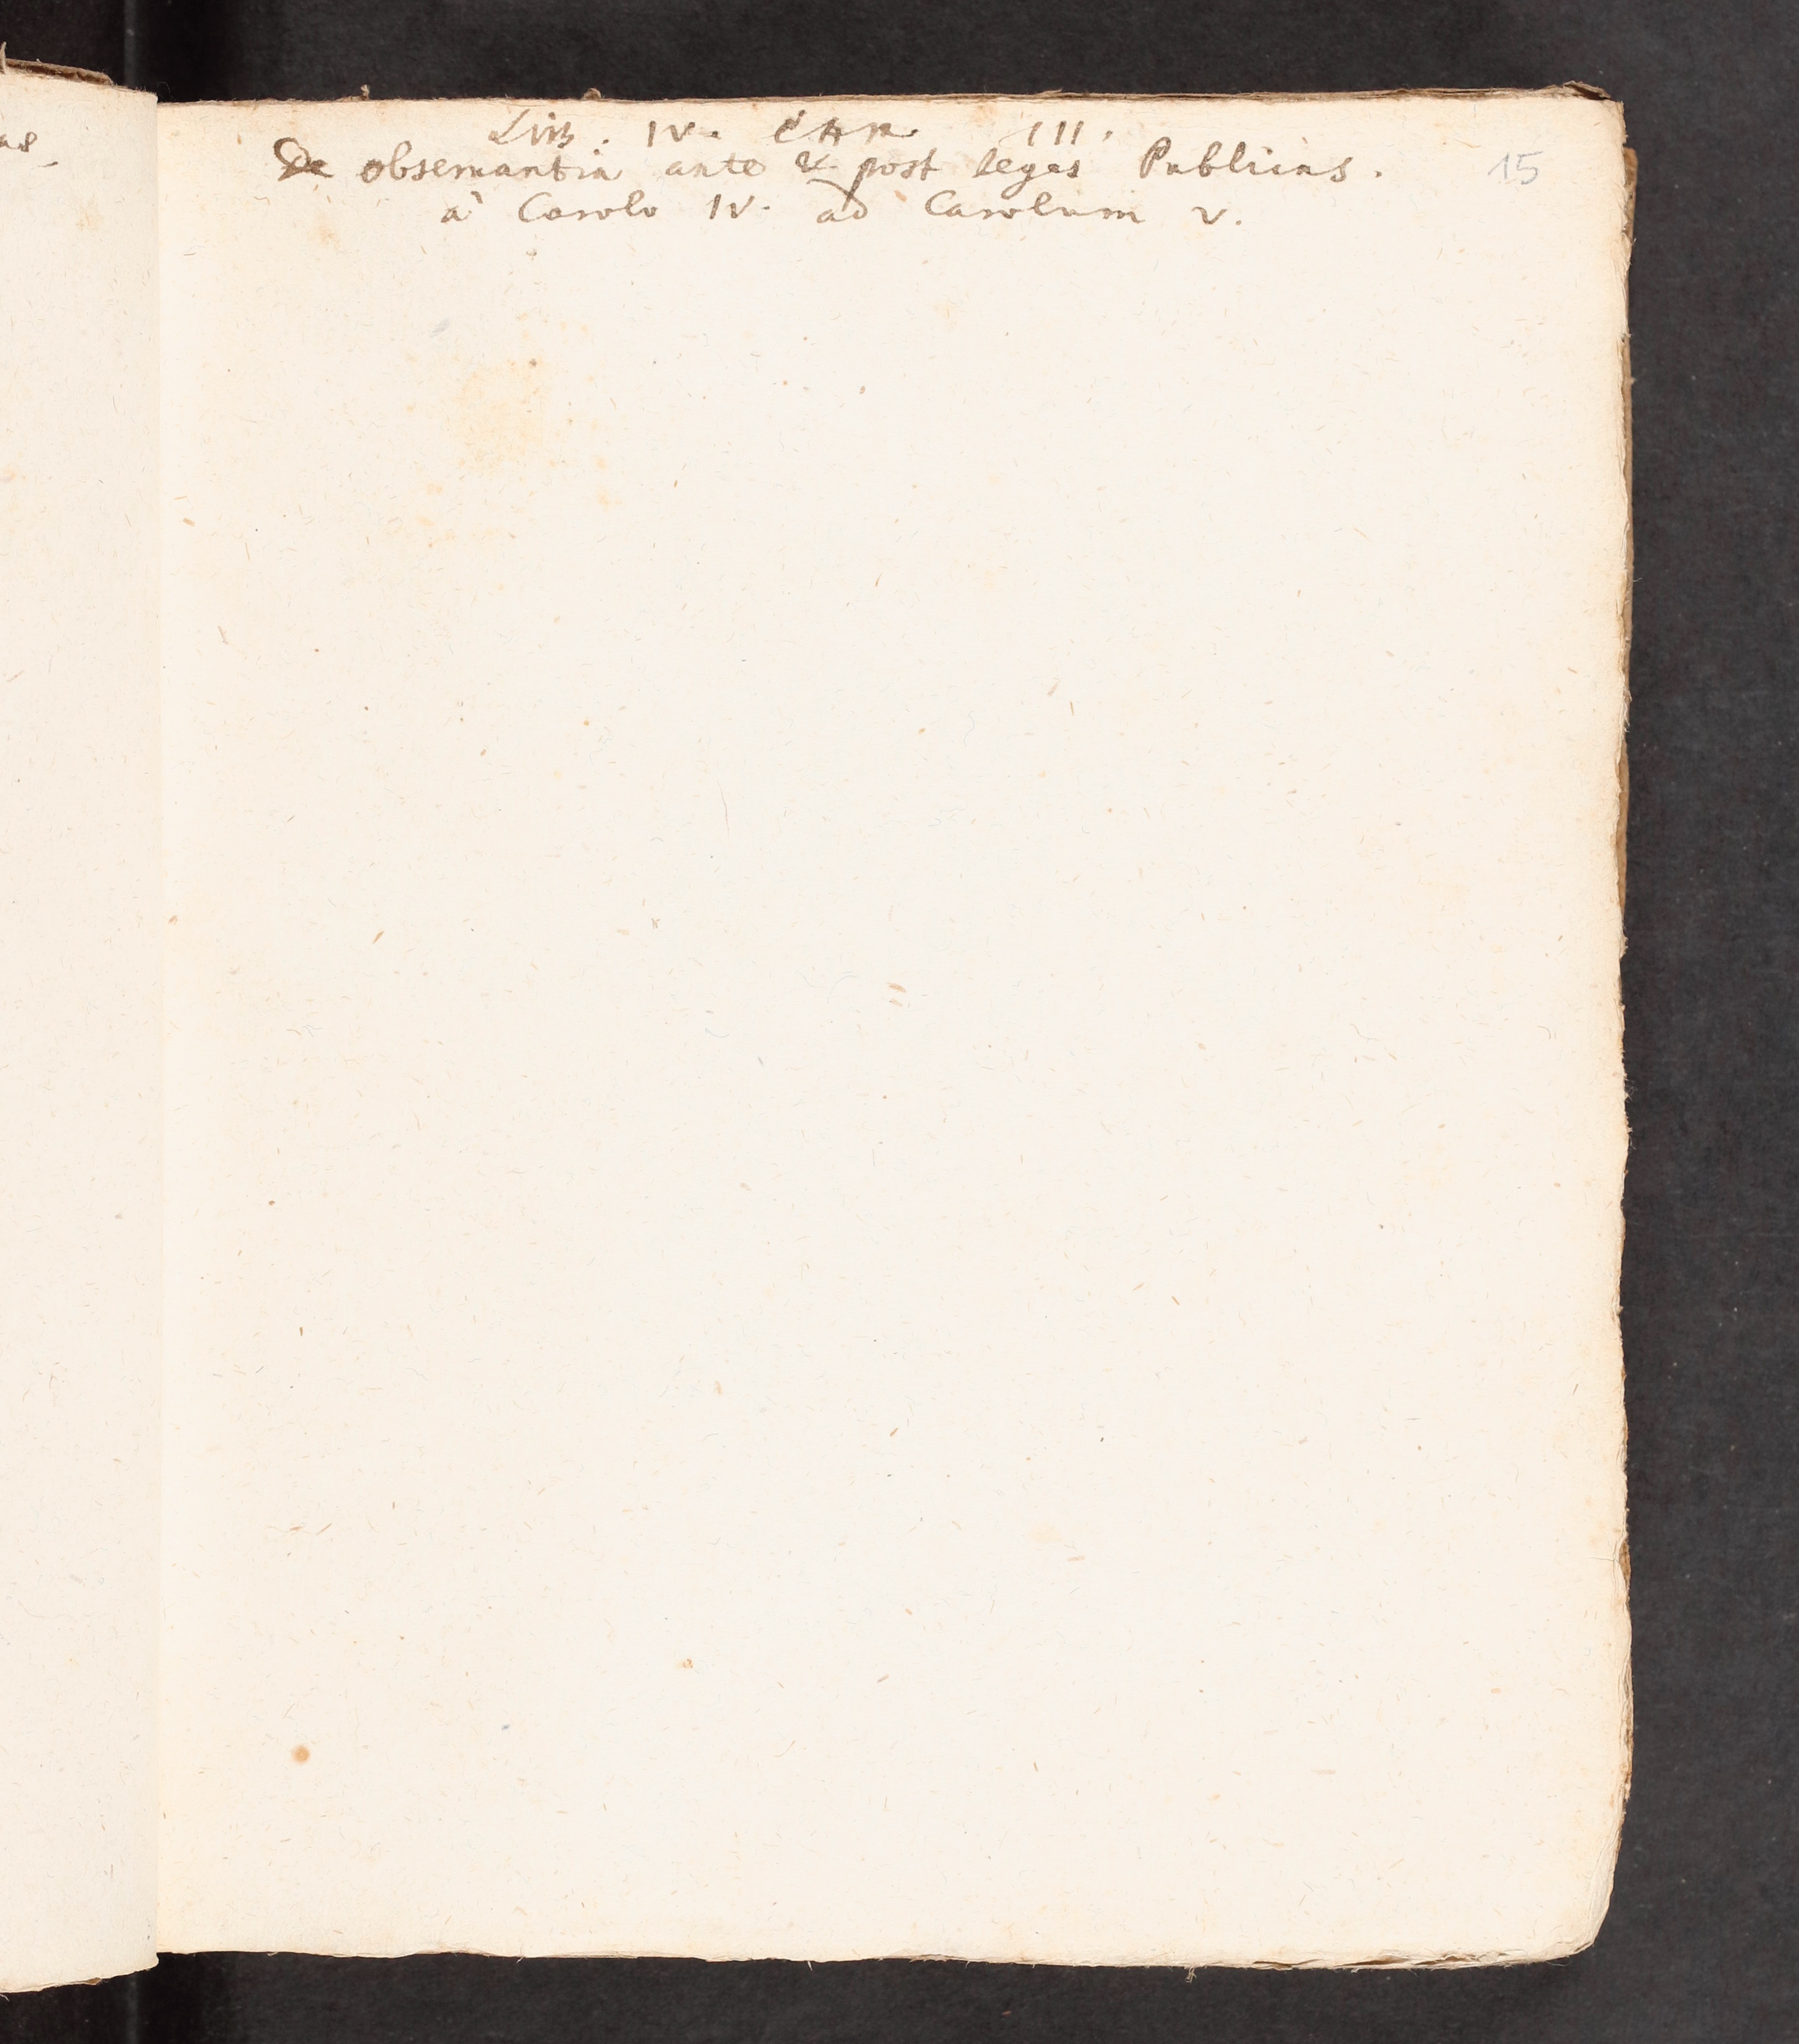 LIB. IV. CAP. III.
De observantia ante & post leges Publicas.
à Carolo IV. ad Carolum V.
15